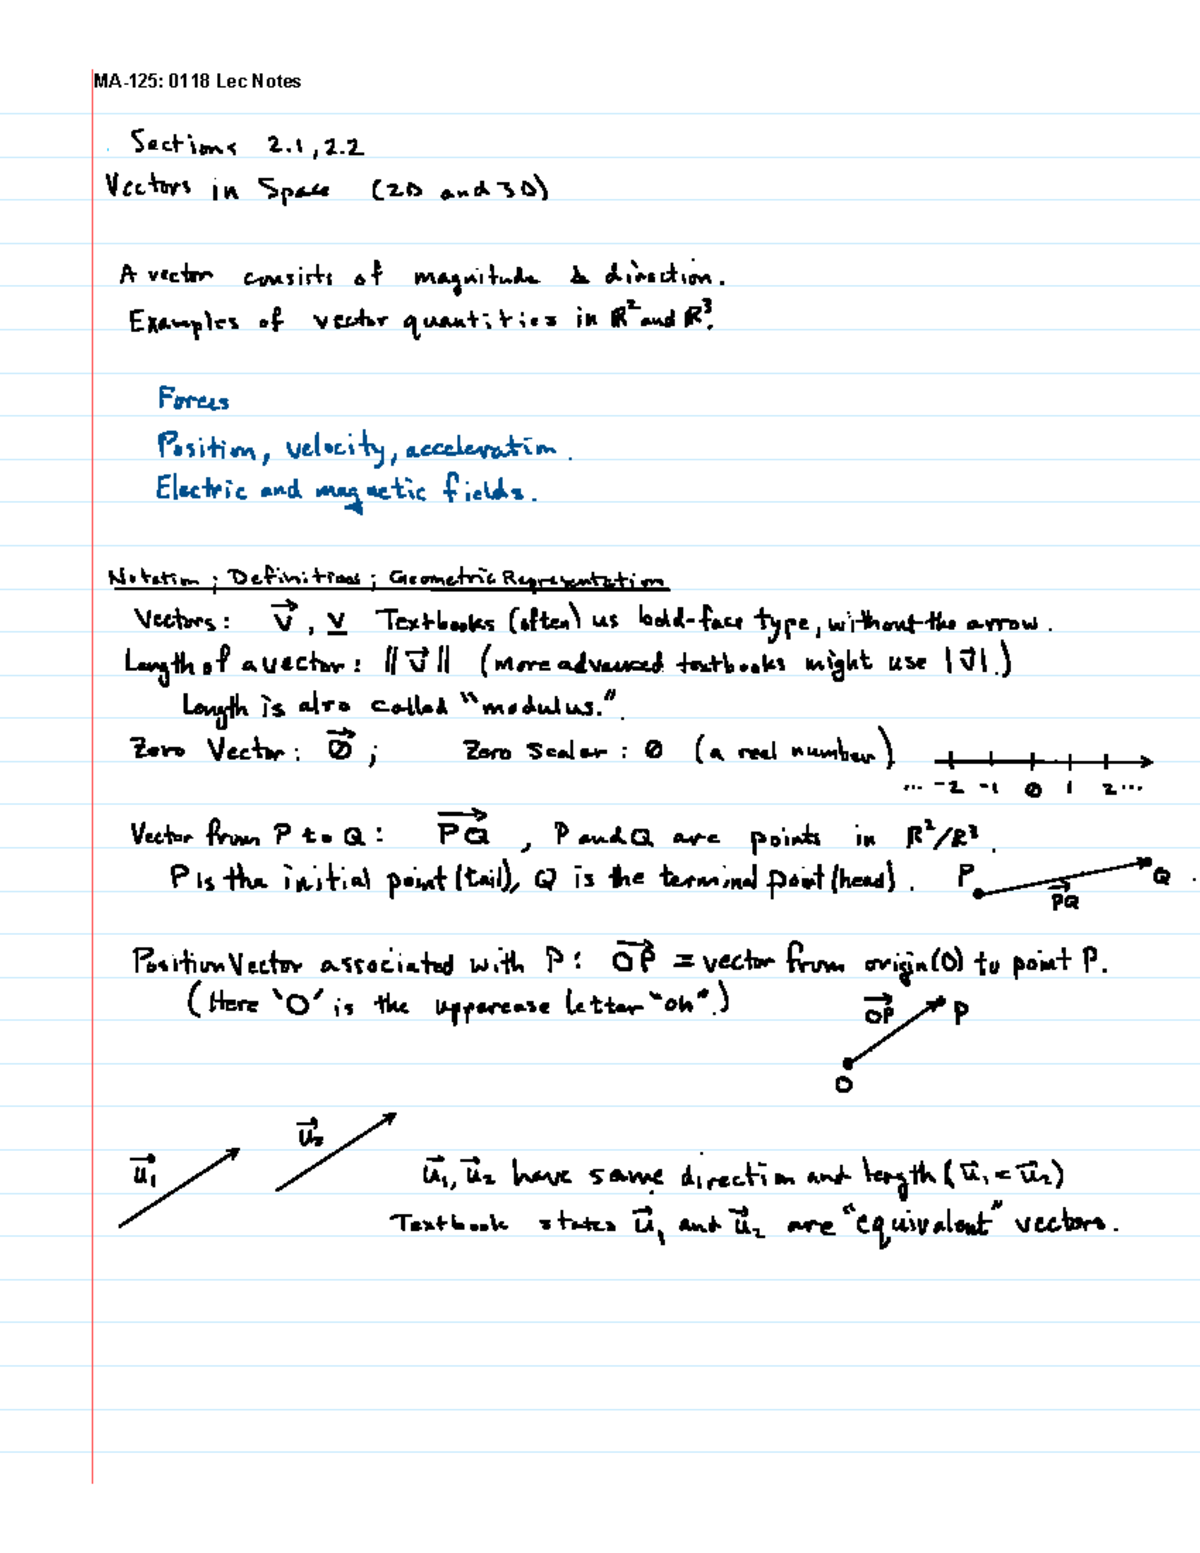 MA-125: 0118 Lec Notes
Sections 2.1, 2.2
Vectors in Space (2D and 3D)
A vector consists of magnitude & direction.
Examples of vector quantities in ℝ² and ℝ³.
Forces
Position, velocity, acceleration.
Electric and magnetic fields.
Notation; Definitions; Geometric Representation
Vectors: v⃗, v̲ Textbooks (often) us bold-face type, without the arrow.
Length of a vector: ‖v⃗‖ (more advanced textbooks might use |v⃗|.)
Length is also called "modulus.".
Zero Vector: 0⃗ ; Zero Scalar: 0 (a real number)
... -2 -1 0 1 2 ...
Vector from P to Q: P͞Q⃗, P and Q are points in ℝ²/ℝ³.
P is the initial point (tail), Q is the terminal point (head).
P PQ⃗ Q
Position Vector associated with P: OP⃗ = vector from origin (O) to point P.
(Here 'O' is the uppercase letter "oh".)
OP⃗ P
O
u⃗₁ u⃗₂
u⃗₁, u⃗₂ have same direction and length (u⃗₁ = u⃗₂)
Textbook states u⃗₁ and u⃗₂ are "equivalent" vectors.